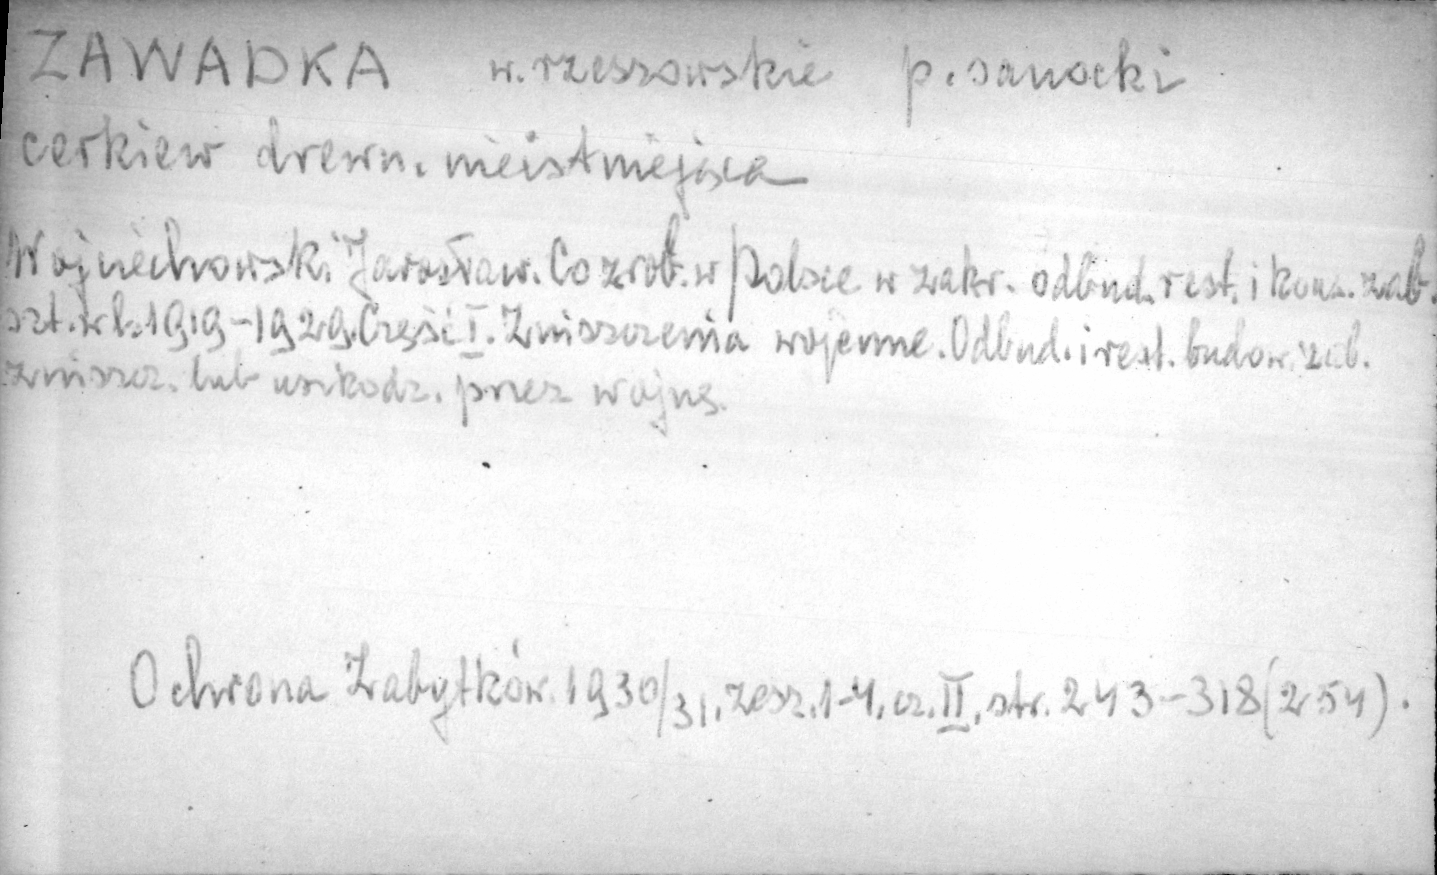 ZAWADKA w. rzeszowskie p. sanocki
cerkiew drewn. nieistniejąca
Wojciechowski Jarosław. Co zrob. w Polsce w zakr. odbud. rest. i kons. zab.
szt. w l. 1919-1929. Część I. Zniszczenia wojenne. Odbud. i rest. budow. zab.
zniszcz. lub uszkodz. przez wojnę.
Ochrona Zabytków. 1930/31, zesz. 1-4, cz. II, str. 243-318 (254).